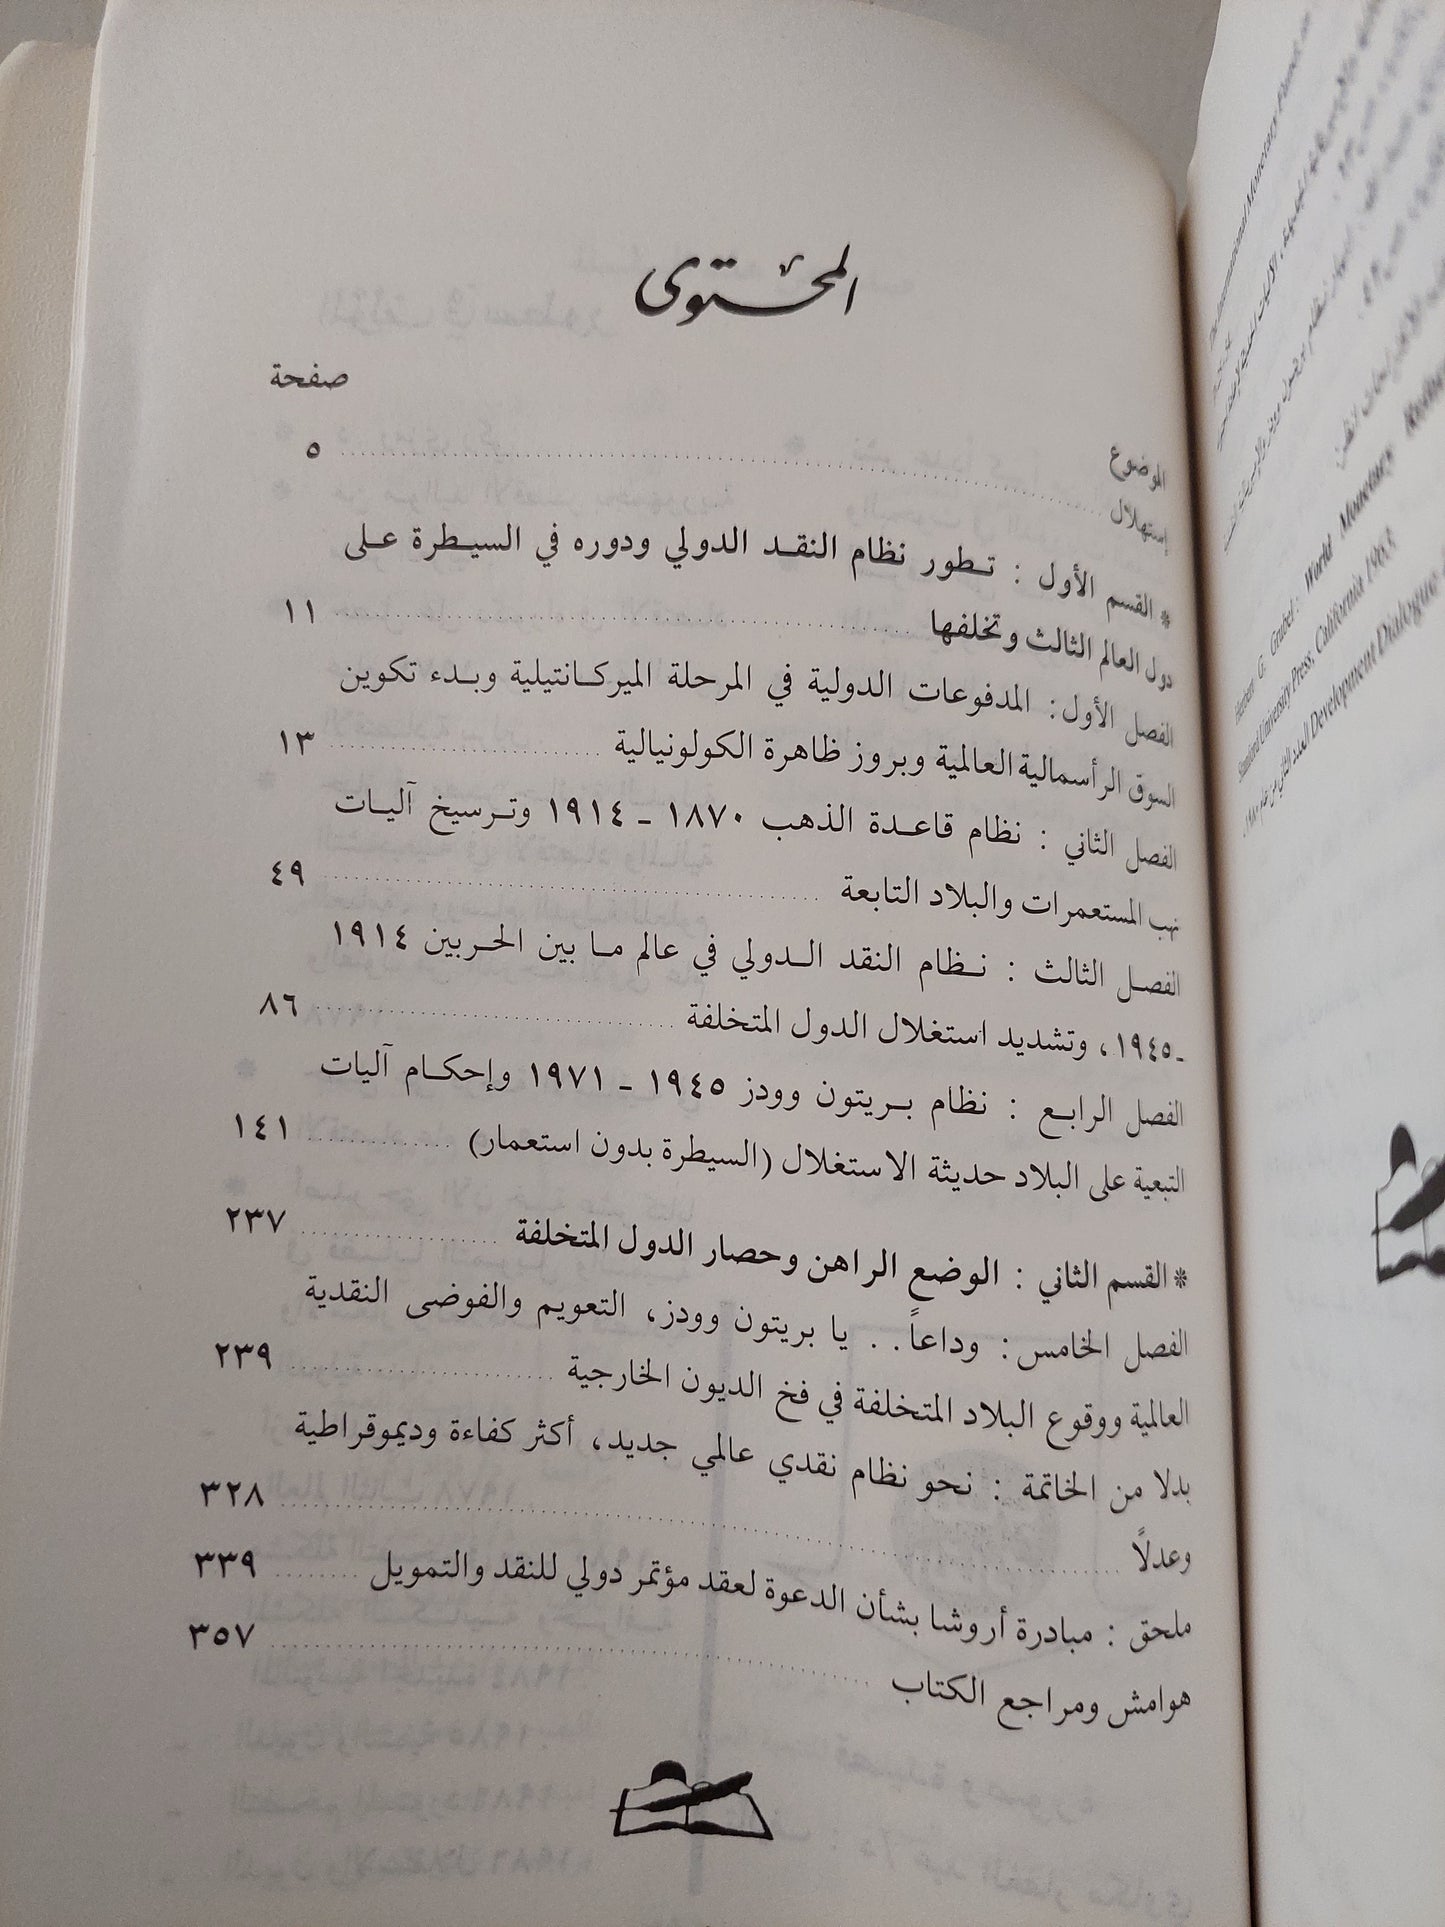 المحتوى
صفحة
الموضوع
إستهلال ٥
* القسم الأول : تطور نظام النقد الدولي ودوره في السيطرة على
دول العالم الثالث وتخلفها ١١
الفصل الأول : المدفوعات الدولية في المرحلة الميركانتيلية وبدء تكوين
السوق الرأسمالية العالمية وبروز ظاهرة الكولونيالية ١٣
الفصل الثاني : نظام قاعدة الذهب ١٨٧٠ ـ ١٩١٤ وترسيخ آليات
نهب المستعمرات والبلاد التابعة ٤٩
الفصل الثالث : نظام النقد الدولي في عالم ما بين الحربين ١٩١٤
ـ ١٩٤٥، وتشديد استغلال الدول المتخلفة ٨٦
الفصل الرابع : نظام بريتون وودز ١٩٤٥ ـ ١٩٧١ وإحكام آليات
التبعية على البلاد حديثة الاستغلال (السيطرة بدون استعمار) ١٤١
* القسم الثاني : الوضع الراهن وحصار الدول المتخلفة ٢٣٧
الفصل الخامس : وداعاً . . يا بريتون وودز، التعويم والفوضى النقدية
العالمية ووقوع البلاد المتخلفة في فخ الديون الخارجية ٢٣٩
بدلا من الخاتمة : نحو نظام نقدي عالمي جديد، أكثر كفاءة وديموقراطية
وعدلاً ٣٢٨
ملحق : مبادرة أروشا بشأن الدعوة لعقد مؤتمر دولي للنقد والتمويل ٣٣٩
هوامش ومراجع الكتاب ٣٥٧
The International Monetary
G. Grubel : World Monetary
Stanford University Press, California 1963
Development Dialogue